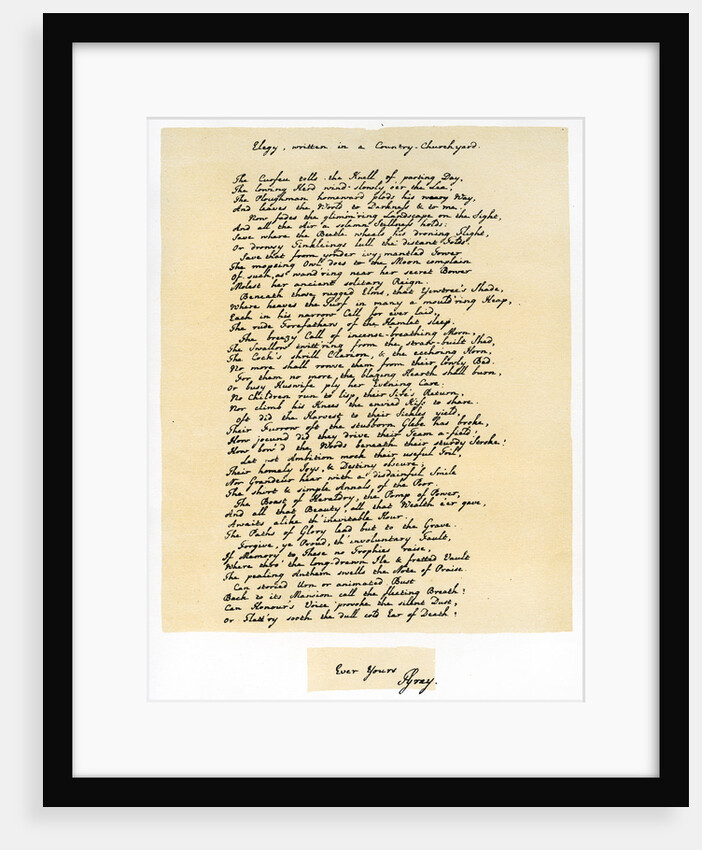 Elegy, written in a Country-Churchyard.
The Curfeu tolls the Knell of parting Day,
The lowing Herd wind slowly o'er the Lea,
The Ploughman homeward plods his weary Way,
And leaves the World to Darkness & to me.
Now fades the glimm'ring Landscape on the Sight,
And all the Air a solemn Stillness holds;
Save where the Beetle wheels his droning Flight,
Or drowsy Tinkleings lull the distant Folds.
Save that from yonder ivy-mantled Tower
The mopeing Owl does to the Moon complain
Of such, as wand'ring near her secret Bower
Molest her ancient solitary Reign.
Beneath those rugged Elms, that Yewtree's Shade,
Where heaves the Turf in many a mould'ring Heap,
Each in his narrow Cell for ever laid,
The rude Forefathers of the Hamlet sleep.
The breezy Call of incense-breathing Morn,
The Swallow twitt'ring from the straw-built Shed,
The Cock's shrill Clarion, & the ecchoing Horn,
No more shall rouse them from their lowly Bed.
For them no more the blazing Hearth shall burn,
Or busy Huswife ply her Evening Care:
No Children run to lisp their Sire's Return,
Nor climb his Knees the envied Kiss to share.
Oft did the Harvest to their Sickle yield,
Their Furrow oft the stubborn Glebe has broke,
How jocund did they drive their Team a-field!
How bow'd the Woods beneath their sturdy Stroke!
Let not Ambition mock their useful Toil,
Their homely Joys, & Destiny obscure;
Nor Grandeur hear with a disdainful Smile
The short & simple Annals of the Poor.
The Boast of Heraldry, the Pomp of Power,
And all that Beauty, all that Wealth e'er gave,
Awaits alike th' inevitable Hour.
The Paths of Glory lead but to the Grave.
Forgive, ye Proud, th' involuntary Fault,
If Memory to These no Trophies raise,
Where thro' the long-drawn Ile & fretted Vault
The pealing Anthem swells the Note of Praise.
Can storied Urn or animated Bust
Back to its Mansion call the fleeting Breath?
Can Honour's Voice provoke the silent Dust,
Or Flatt'ry sooth the dull cold Ear of Death?
Ever Yours
TGray.